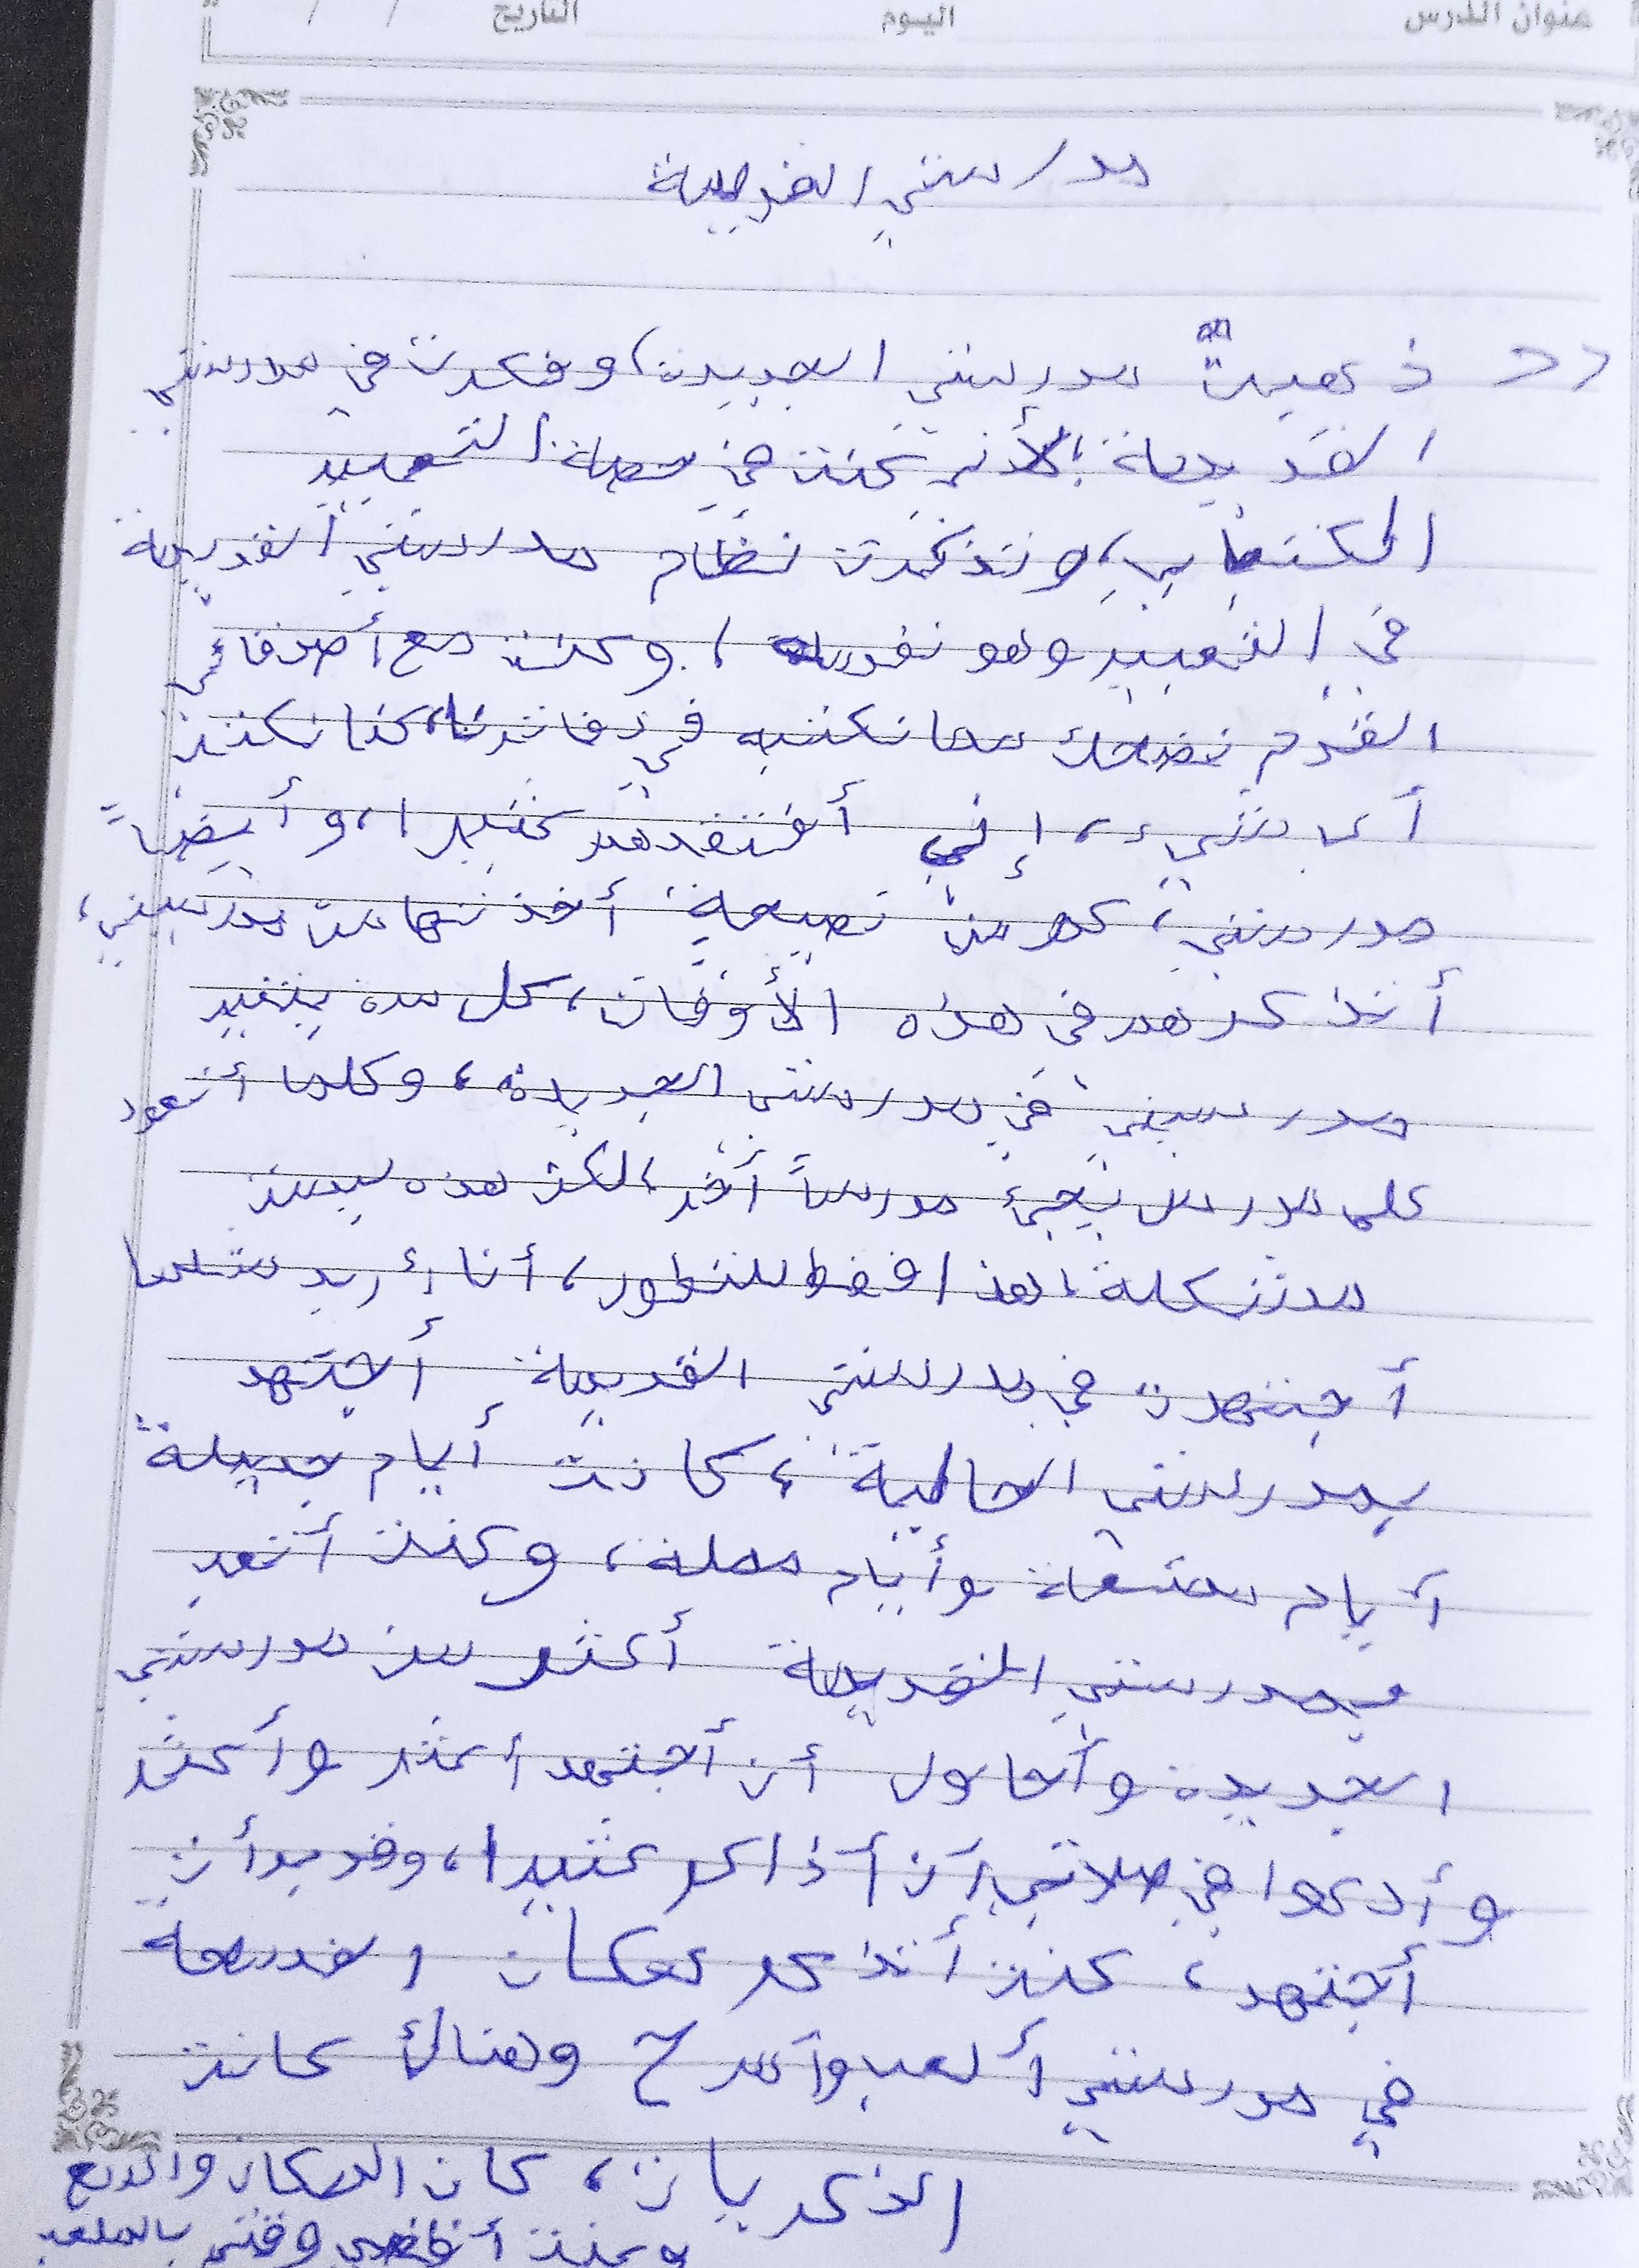 عنوان الدرس اليوم التاريخ / /
مدرستي القديمة
ذهبت مدرستي الجديدة، وفكرت في مدرستي
القديمة؛ لأني كنت في حصة التعبير
الكتابي، وتذكرت نظام مدرستي القديمة
في التعبير وهو نفسه، وكنت مع أصدقائي
القدم نضحك مما نكتبه في دفاترنا، كنا نكتب
أي شيء، إني أفتقدهم كثيرا، وأيضاً
مدرستي، كم من نصيحة أخذتها من مدرسيني،
أتذكرهم في هذه الأوقات، كل مدة يتغير
مدرسيني في مدرستي الجديدة، وكلما أتعود
على مدرس يجيئ مدرساً آخر، لكن هذه ليست
مشكلة، هذا فقط للتطور، أنا أريد مثلما
أجتهدت في مدرستي القديمة أجتهد
بمدرستي الحالية، كانت أيام جميلة
أيام ممتعة وأيام مملة، وكنت أتعب
بمدرستي القديمة أكثر من مدرستي
الجديدة وأحاول أن أجتهد أكثر وأكثر
وأدعوا في صلاتي أن أذاكر كثيرا، وقد بدأت
أجتهد، كنت أتذكر مكان الفسحة
في مدرستي ألعب وأمرح وهناك كانت
الذكريات، كان المكان الرائع
وكنت أقضي وقتي بالملعب